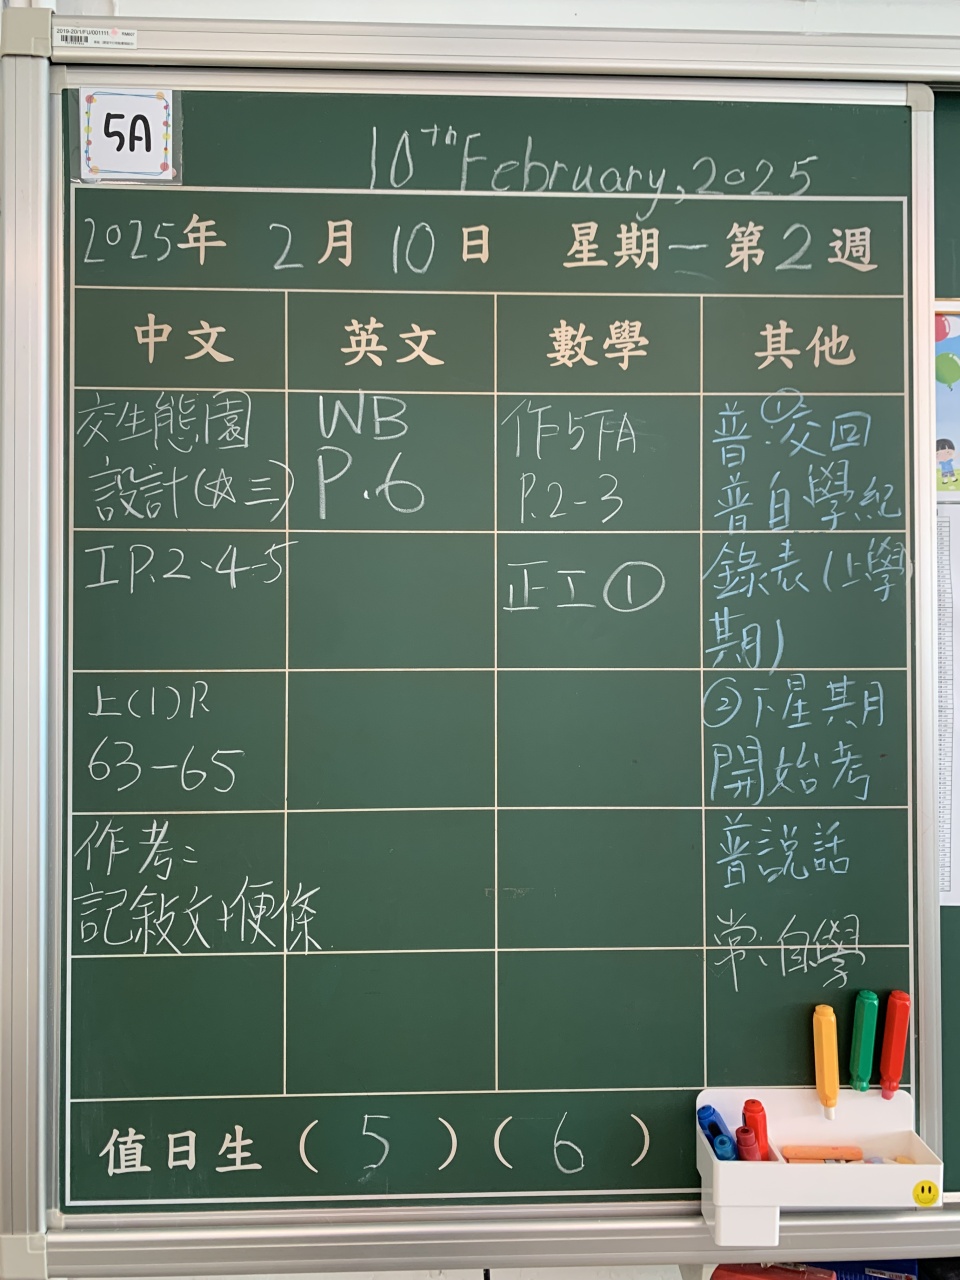 5A
10th February, 2025
2025年 2月10日 星期一 第2週
中文 英文 數學 其他
交生態園
設計(☆三)
工P.2、4-5
上(1)P.
63-65
作考:
記敍文+便條
WB
P.6
作5下A
P.2-3
正工①
普:①交回
普自學紀
錄表(上學
期)
②下星期
開始考
普說話
常:自學
值日生(5)(6)